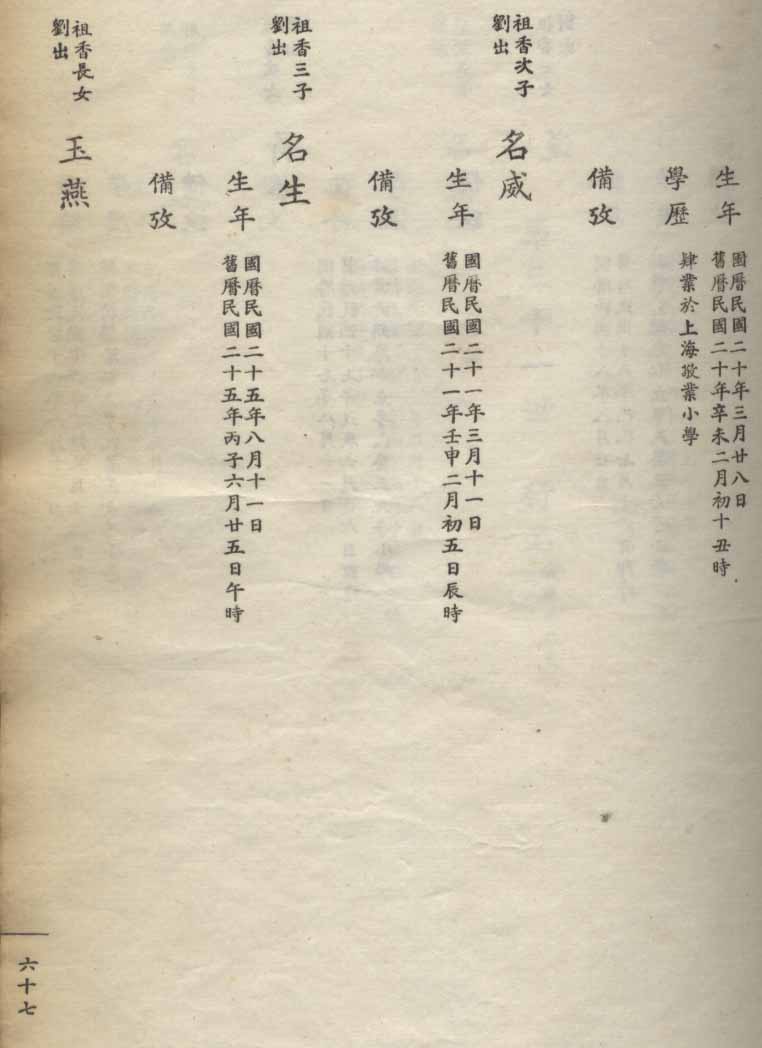 生年
國曆民國二十年三月廿八日
舊曆民國二十年辛未二月初十丑時
學歷
肄業於上海敬業小學
備攷
祖香次子
劉出
名威
生年
國曆民國二十一年三月十一日
舊曆民國二十一年壬申二月初五日辰時
備攷
祖香三子
劉出
名生
生年
國曆民國二十五年八月十一日
舊曆民國二十五年丙子六月廿五日午時
備攷
祖香長女
劉出
玉燕
六十七